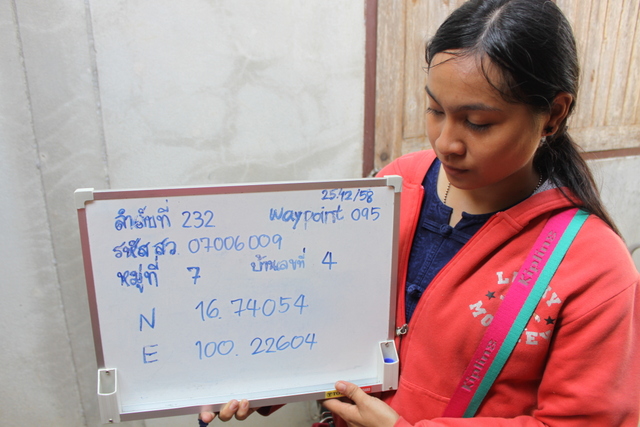 25/12/58
ลำดับที่ 232 waypoint 095
รหัส สว. 07006009
หมู่ที่ 7 บ้านเลขที่ 4
N 16.74054
E 100.22604
Kipling
Kipling